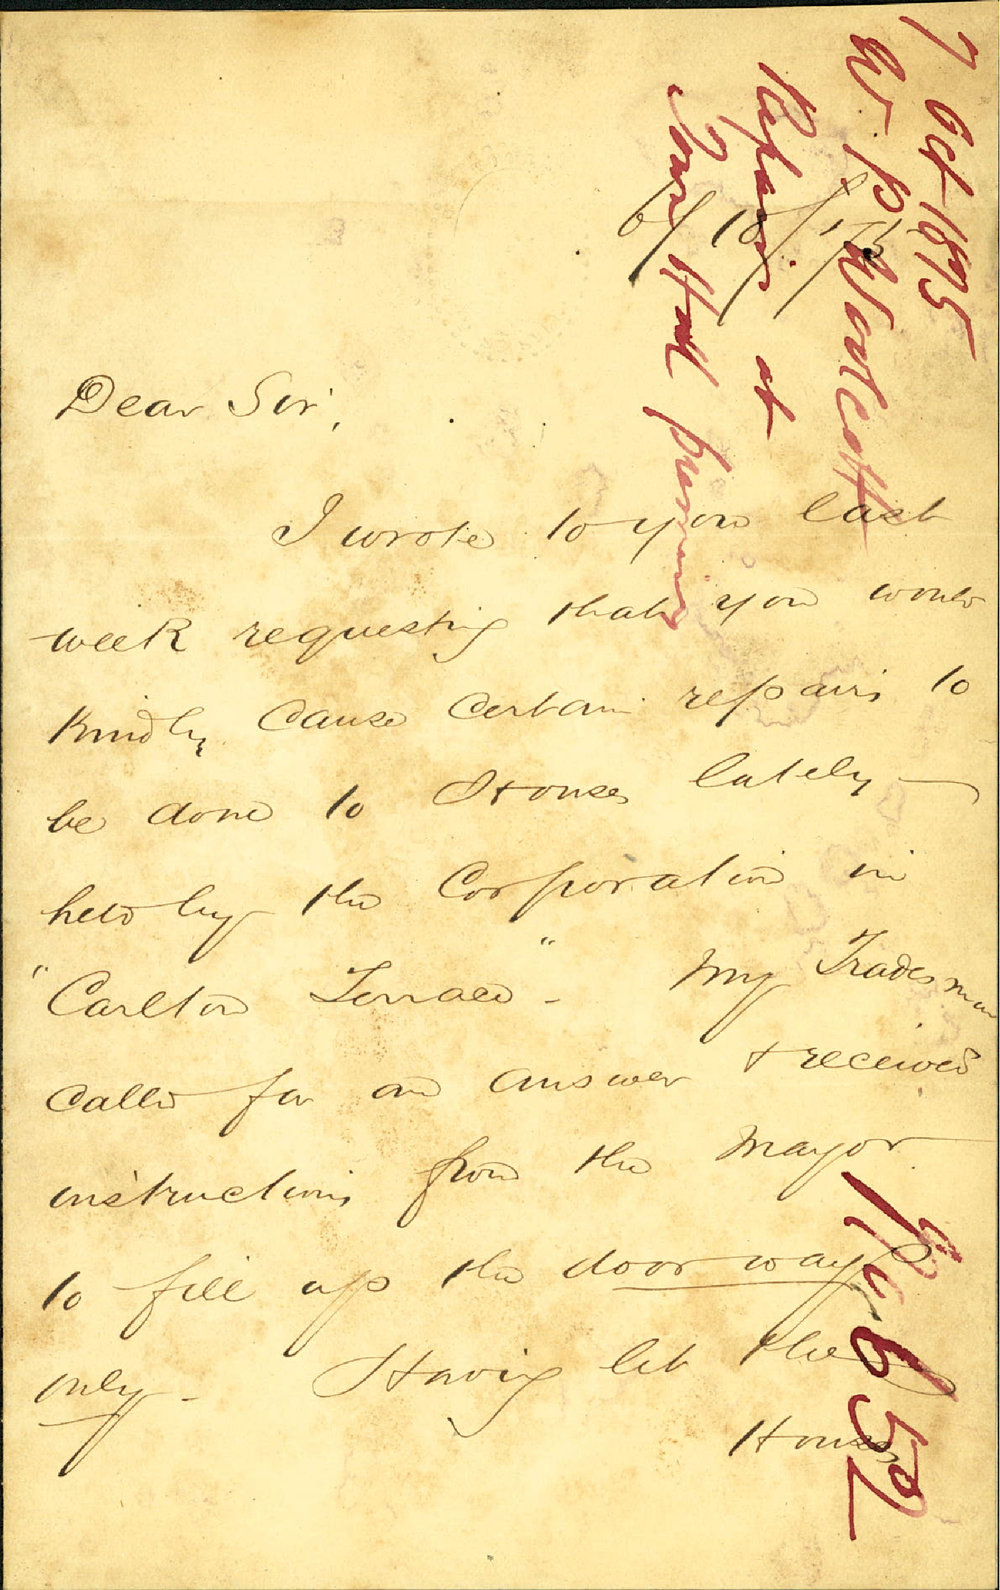 7 Oct 1875
W. P.
Repairs at
Town Hall premises
6/10/75
Dear Sir,
I wrote to you last
week requesting that you would
kindly cause certain repairs to
be done to Houses lately
held by the Corporation in
"Carlton Terrace" - My Tradesman
called for an answer & received
instructions from the Mayor
to fill up the door way
only - Having let the
Houses
652